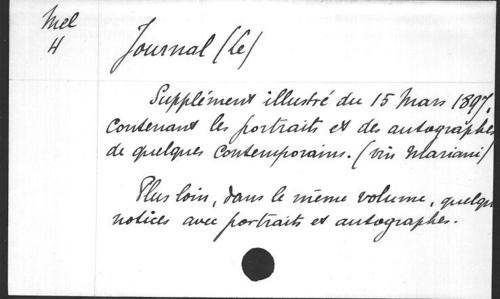 Mel
4
Journal (Le)
Supplément illustré du 15 Mars 1897.
contenant les portraits et des autographes
de quelques contemporains. (vin Mariani)
Plus loin, dans le même volume, quelques
notices avec portraits et autographes.